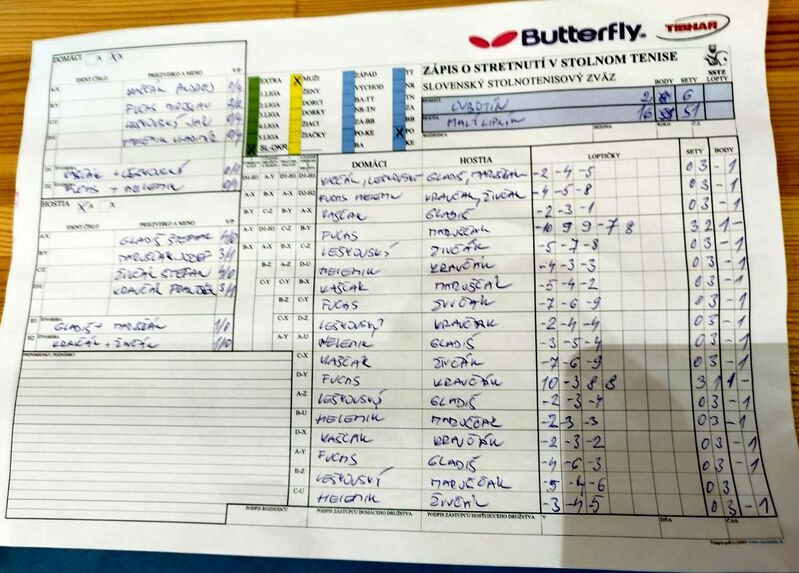 Butterfly
TIBHAR
ZÁPIS O STRETNUTÍ V STOLNOM TENISE
SLOVENSKÝ STOLNOTENISOVÝ ZVÄZ
SSTZ
LOPTY
DOMÁCI A X X
IDENT ČÍSLO PRIEZVISKO A MENO V/P
A/X KAŠČÁK ANDREJ 0/4
B/Y FUCHS
C/Z LEŠKOVSKÝ JÁN 0/4
D/U HELEMIK VLADIMÍR 0/4
D1 ŠTVORHRA KAŠČÁK + LEŠKOVSKÝ 0/1
D2 FUCHS + HELEMIK 0/1
HOSTIA X A X
IDENT ČÍSLO PRIEZVISKO A MENO V/P
A/X GLADIŠ ŠTEFAN 4/0
B/Y MARUŠČÁK JOZEF 3/1
C/Z ŽIVČÁK ŠTEFAN 4/0
D/U KRAVČÁK FRANTIŠEK 3/1
H1 ŠTVORHRA GLADIŠ + MARUŠČÁK 1/0
H2 KRAVČÁK + ŽIVČÁK 1/0
PRIPOMIENKY, POZNÁMKY
EXTRA X MUŽI ZÁPAD TT
I.LIGA ŽENY VÝCHOD NR
DORCI BA-TT
DORKY NR-TN ZA
ŽIACI ZA-BB BB
5.LIGA ŽIAČKY PO-KE X PO
X SL-OKR BA KE
DOMÁCI ĽUBOTÍN BODY 2 SETY 6
HOSTIA MALÝ LIPNÍK 16 51
ROZHODCA SEZÓNA KOLO Č.Z.
DOMÁCI HOSTIA LOPTIČKY SETY BODY
KAŠČÁK, LEŠKOVSKÝ GLADIŠ, MARUŠČÁK -2 -4 -5 0 3 -1
FUCHS HELEMIK KRAVČÁK, ŽIVČÁK -4 -5 -8 0 3 -1
KAŠČÁK GLADIŠ -2 -3 -1 0 3 -1
FUCHS MARUŠČÁK -10 9 9 -7 8 3 2 1 -
LEŠKOVSKÝ ŽIVČÁK -5 -7 -8 0 3 -1
HELEMIK KRAVČÁK -4 -3 -3 0 3 -1
KAŠČÁK MARUŠČÁK -5 -4 -2 0 3 -1
FUCHS ŽIVČÁK -7 -6 -9 0 3 -1
LEŠKOVSKÝ KRAVČÁK -2 -4 -4 0 3 -1
HELEMIK GLADIŠ -3 -5 -4 0 3 -1
KAŠČÁK ŽIVČÁK -7 -6 -9 0 3 -1
FUCHS KRAVČÁK 10 -3 8 8 3 1 1 -
LEŠKOVSKÝ GLADIŠ -2 -3 -4 0 3 -1
HELEMIK MARUŠČÁK -2 -3 -3 0 3 -1
KAŠČÁK KRAVČÁK -2 -3 -2 0 3 -1
FUCHS GLADIŠ -4 -6 -3 0 3 -1
LEŠKOVSKÝ MARUŠČÁK -5 -4 -6 0 3
HELEMIK ŽIVČÁK -3 -4 -5 0 3 -1
PODPIS ROZHODCU PODPIS ZÁSTUPCU DOMÁCEHO DRUŽSTVA PODPIS ZÁSTUPCU HOSŤUJÚCEHO DRUŽSTVA V DŇA ČAS